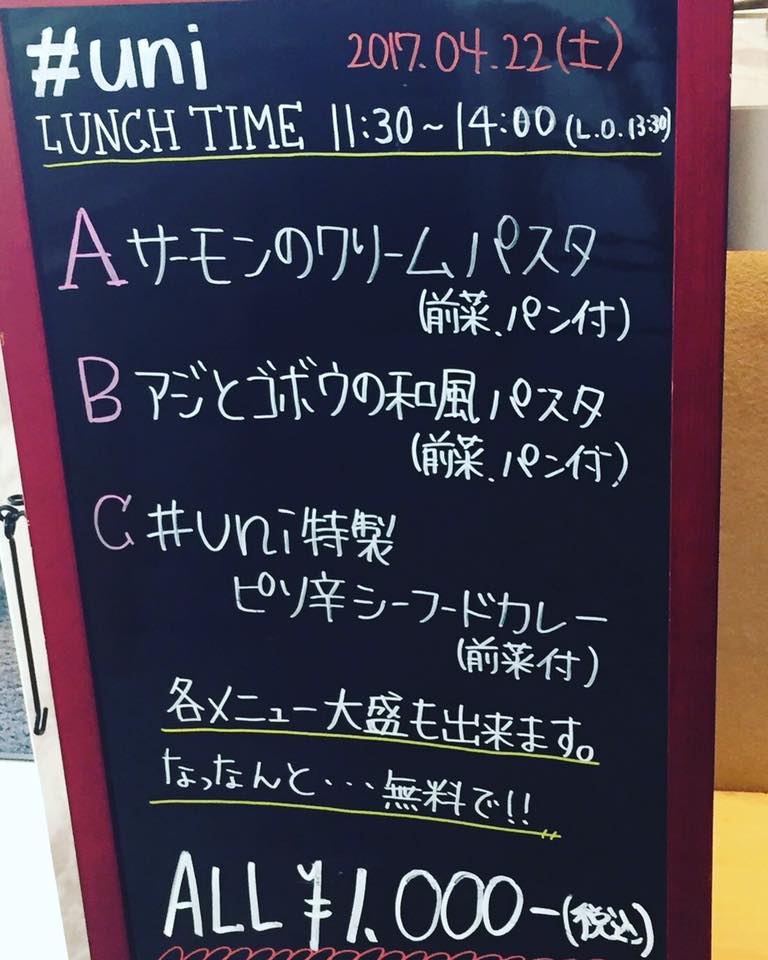 #uni 2017.04.22(土)
LUNCH TIME 11:30~14:00(L.O.13:30)
A サーモンのクリームパスタ
(前菜、パン付)
B アジとゴボウの和風パスタ
(前菜、パン付)
C #uni特製
ピリ辛シーフードカレー
(前菜付)
各メニュー大盛も出来ます。
なっなんと・・・無料で!!
ALL ¥1.000-(税込)